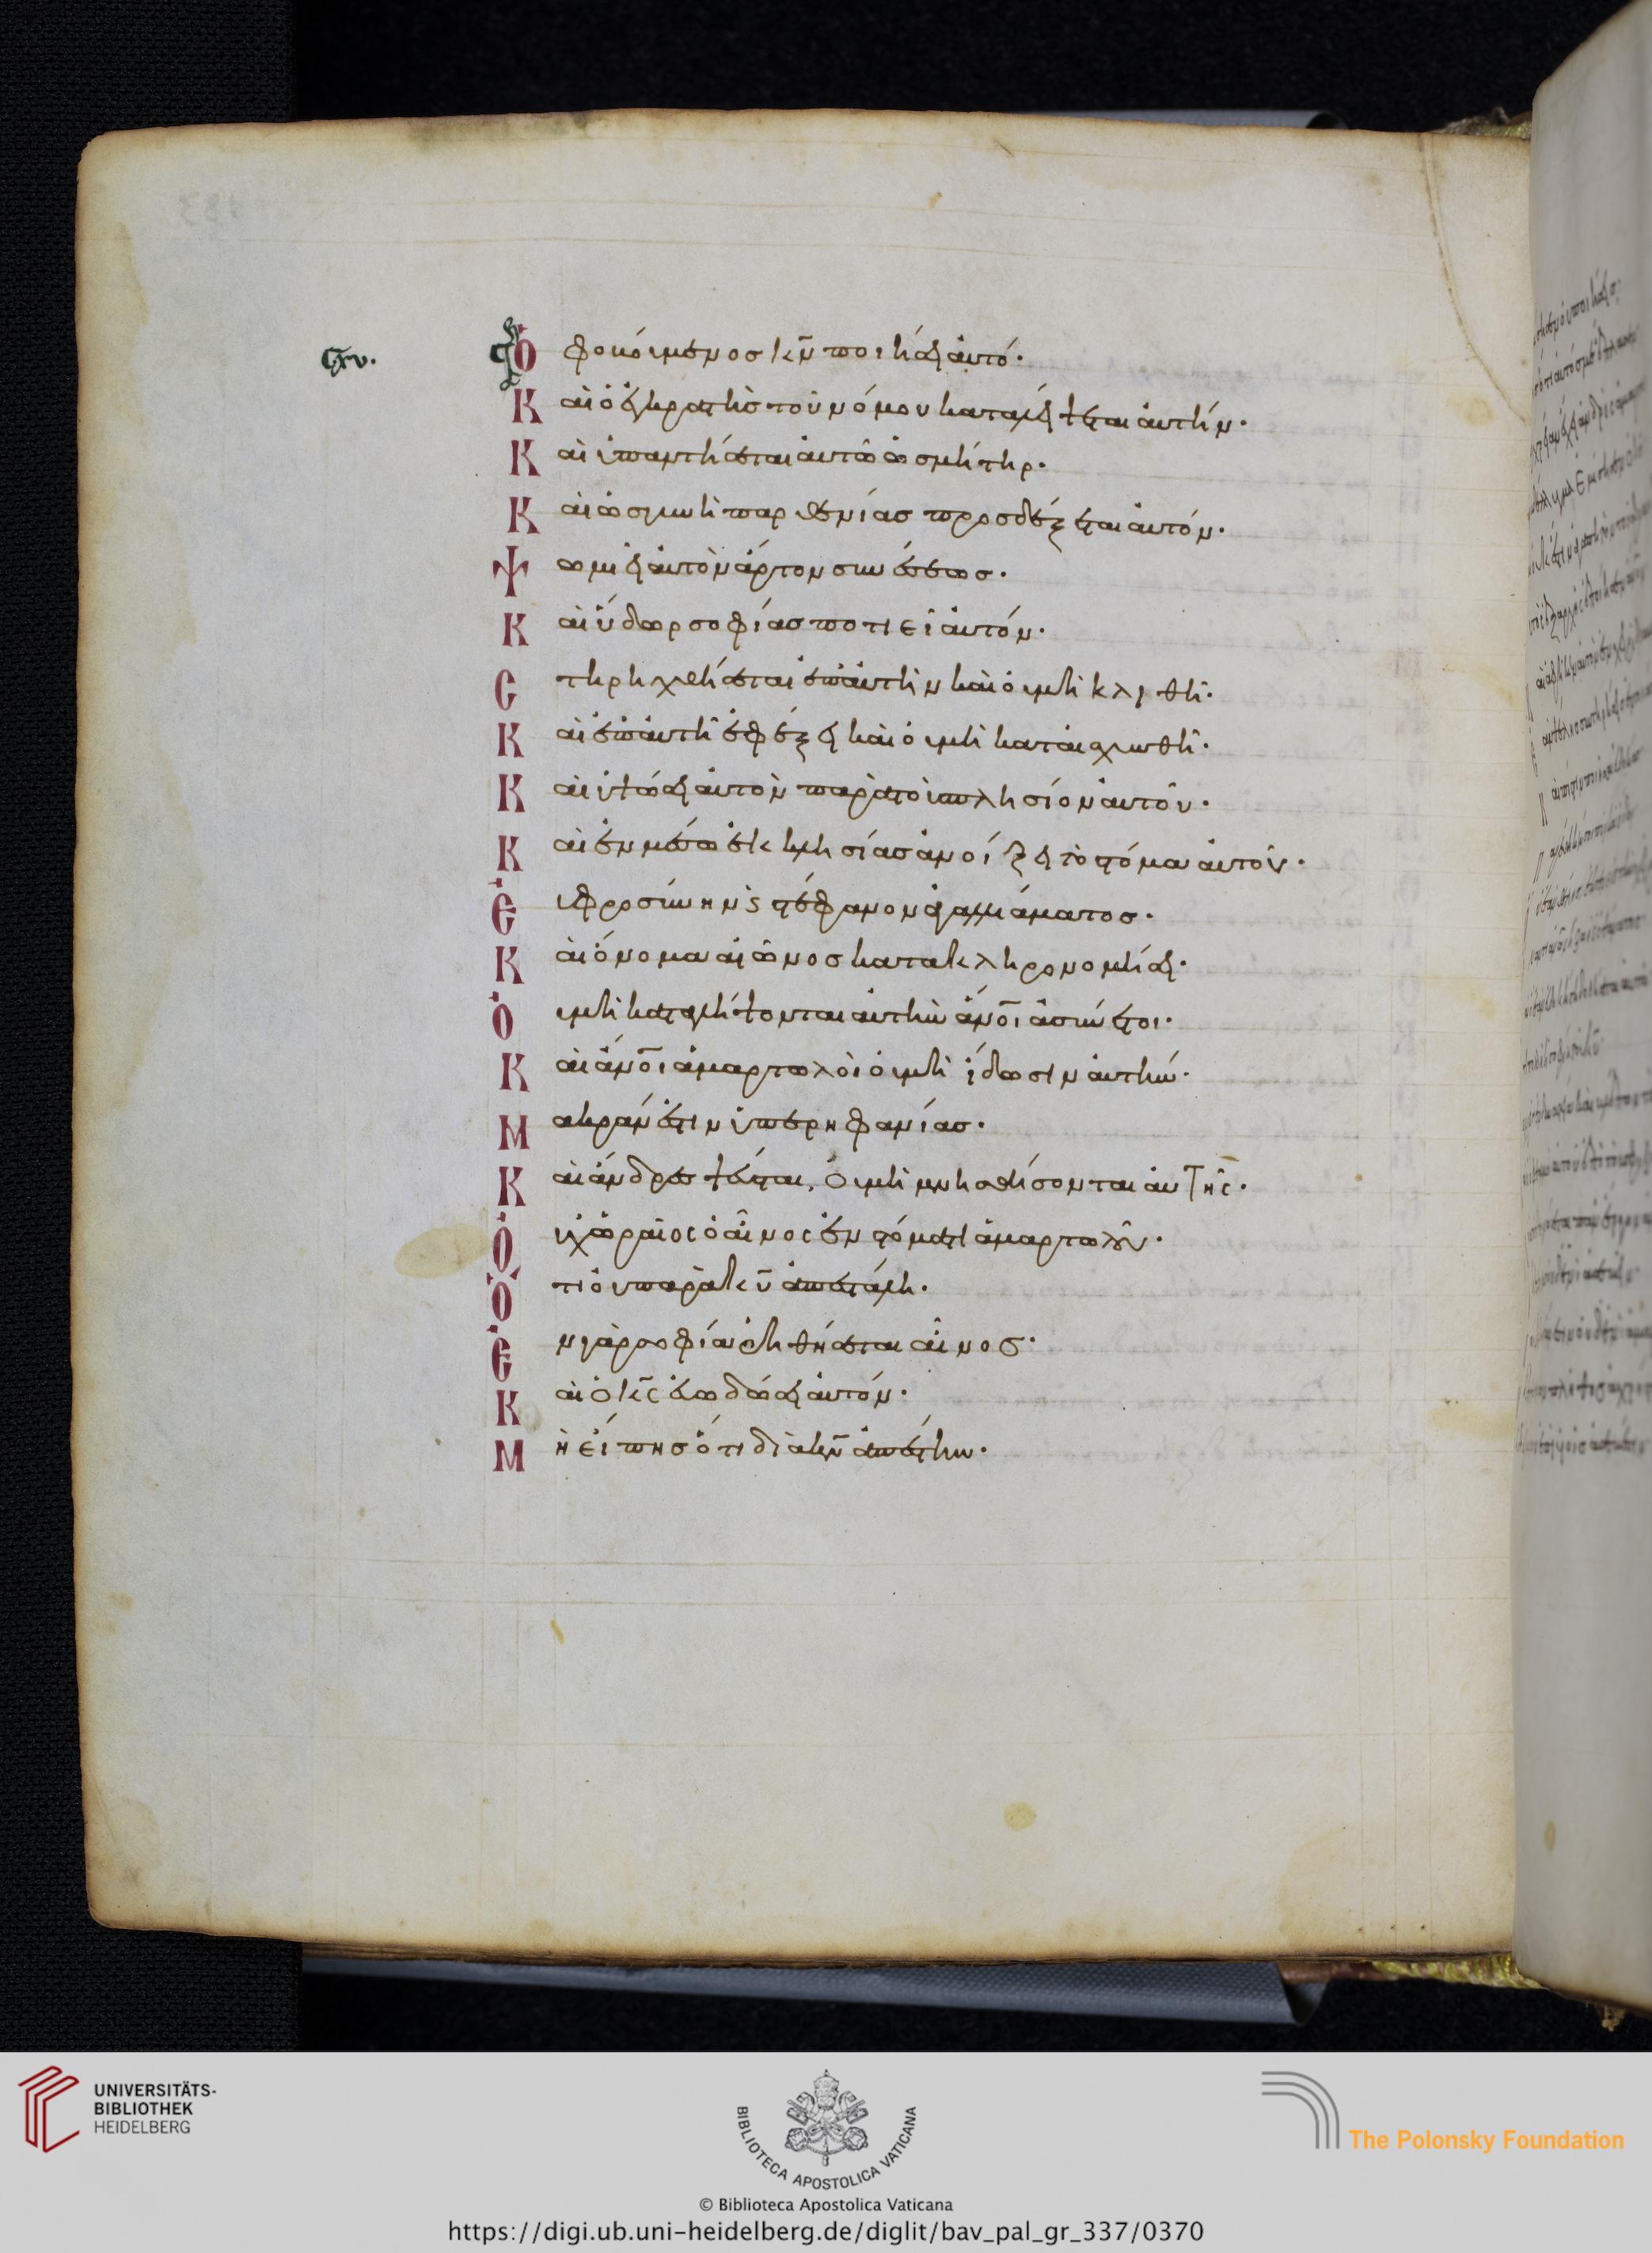 Ὁ φοβούμενος κ̅ν̅ ποιήσει αὐτό·
Καὶ ὁ ἐγκρατὴς τοῦ νόμου καταλήψεται αὐτήν·
Καὶ ὑπαντήσεται αὐτῶ ὡς μήτηρ·
Καὶ ὡς γυνὴ παρθενίας προσδέξεται αὐτόν·
Ψωμιεῖ αὐτὸν ἄρτον συνέσεως·
Καὶ ὕδωρ σοφίας ποτιεῖ αὐτόν·
Στηριχθήσεται ἐπ αὐτὴν καὶ οὐ μὴ κλιθῆ·
Καὶ ἐπ αὐτῆ ἐφέξει καὶ οὐ μὴ καταισχυνθῆ·
Καὶ ὑψώσει αὐτὸν παρὰ τὸν πλησίον αὐτοῦ·
Καὶ ἐν μέσω ἐκκλησίας ἀνοίξει τὸ στόμα αὐτοῦ·
Εὐφροσύνην ϛ στέφανον ἀγαλλιάματος·
Καὶ ὄνομα αἰῶνος κατακληρονομήσει·
Οὐ μὴ καταλήψονται αὐτὴν ἄν̅ο̅ι̅ ἀσύνετοι·
Καὶ ἄν̅ο̅ι̅ ἁμαρτωλοὶ οὐ μὴ ἴδωσιν αὐτήν·
Μακράν ἐστιν ὑπερηφανίας·
Καὶ ἄνδρες ψεῦσται, οὐ μὴ μνησθήσονται αὐτῆς·
Οὐχ ὡραῖος ὁ αἶνος ἐν στόματι ἁμαρτωλοῦ·
Ὅτι οὐ παρὰ κ̅υ̅ ἀπεστάλη·
Ἐν γὰρ σοφία ῥηθήσεται αἶνος·
Καὶ ὁ κ̅ς̅ εὐοδώσει αὐτόν·
Μὴ εἴπης ὅτι διὰ κ̅ν̅ ἀπέστην·
UNIVERSITÄTS-
BIBLIOTHEK
HEIDELBERG
BIBLIOTECA APOSTOLICA VATICANA
© Biblioteca Apostolica Vaticana
The Polonsky Foundation
https://digi.ub.uni-heidelberg.de/diglit/bav_pal_gr_337/0370